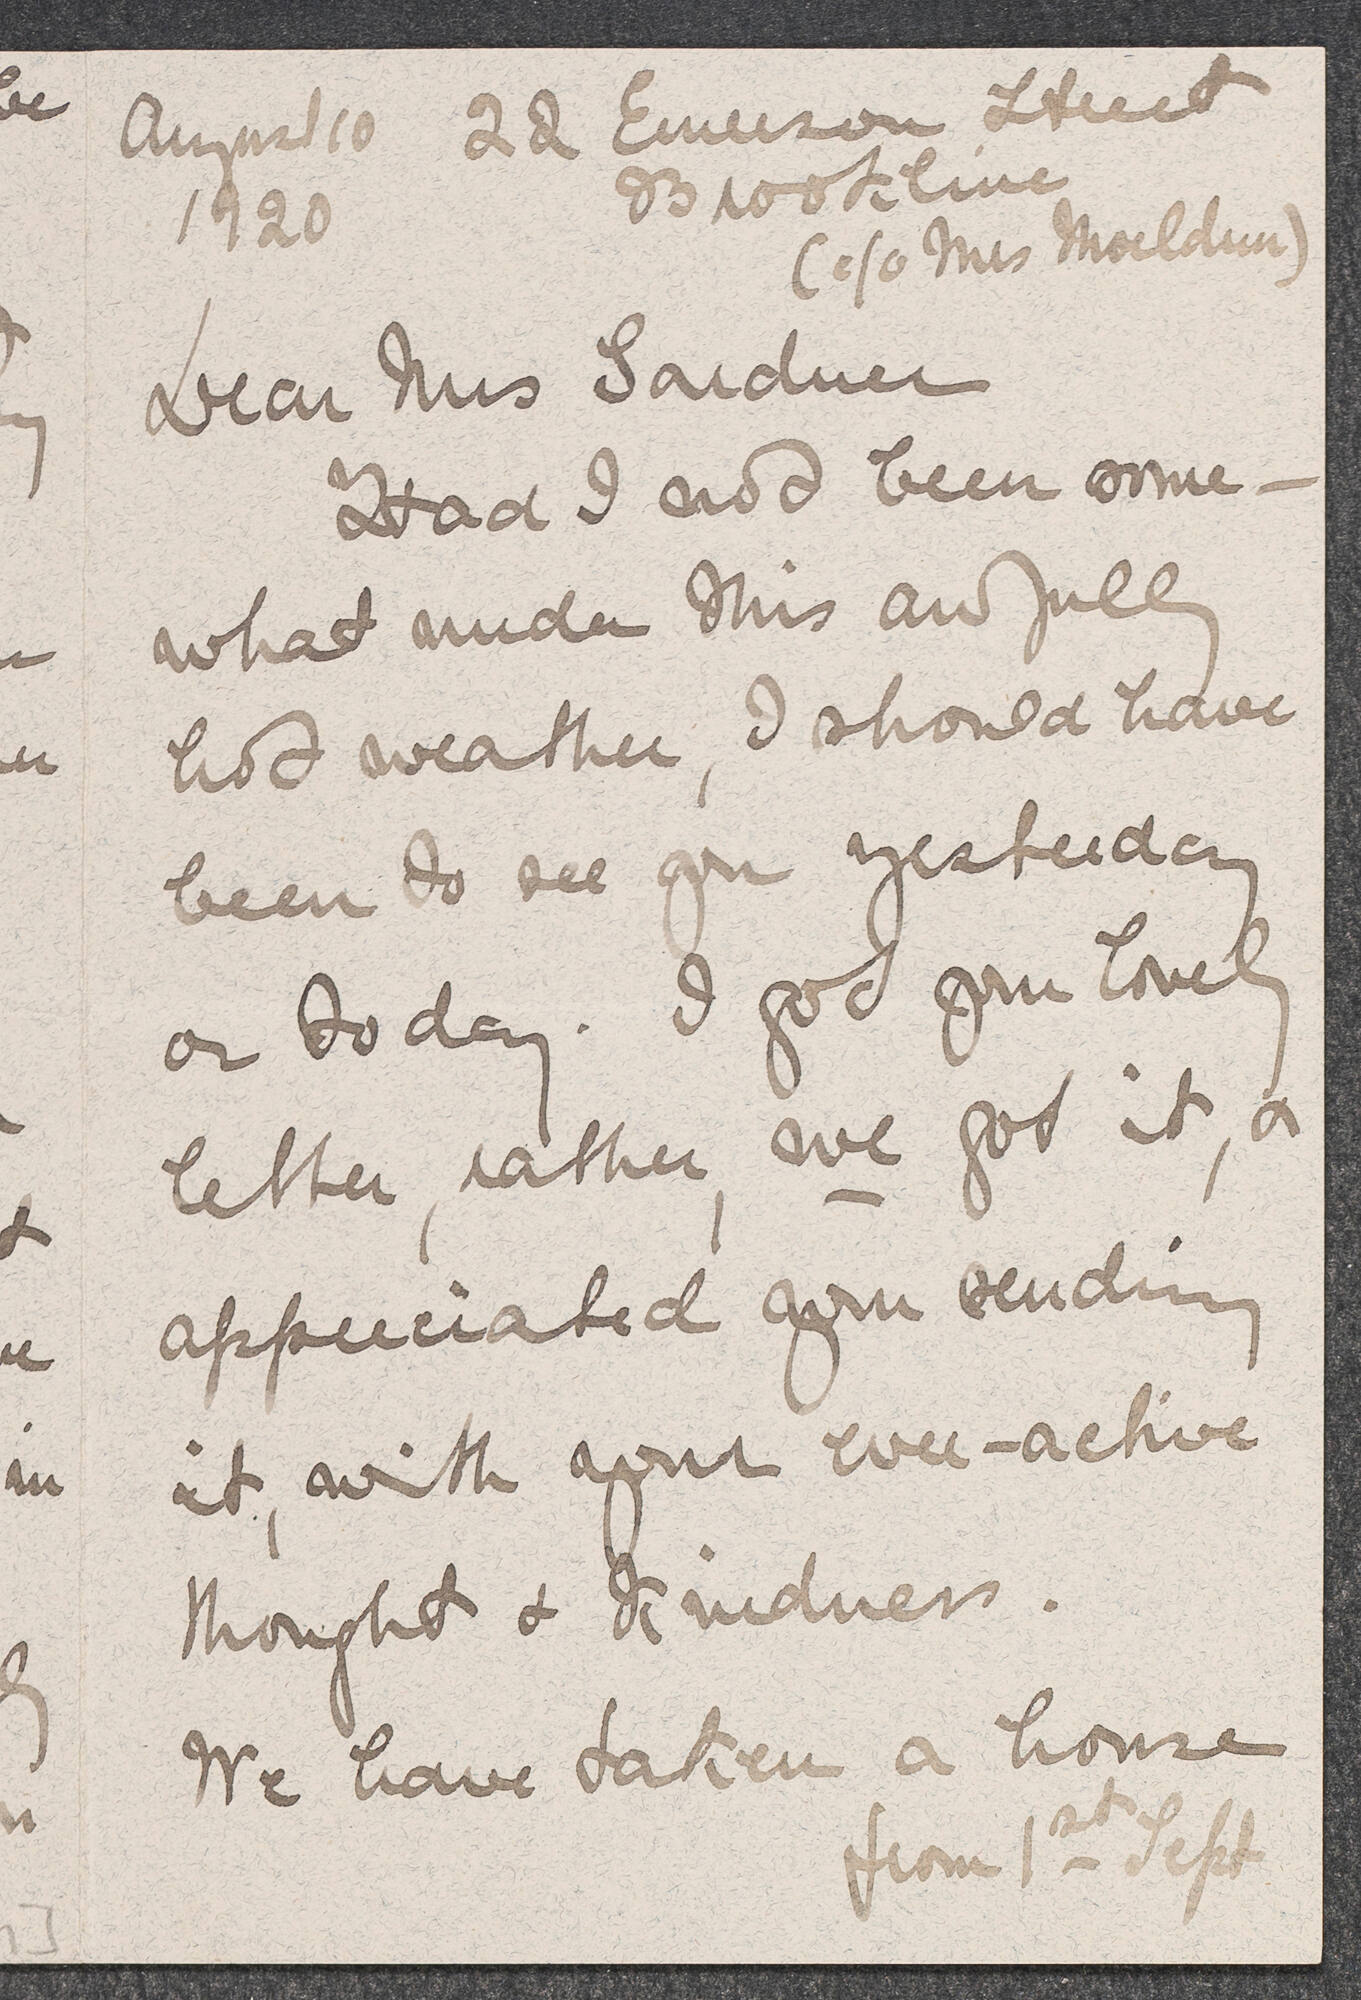 August 10 22 Emerson Street
1920 Brookline
(c/o Mrs Moeldner)
Dear Mrs Gardner
Had I not been some-
what under this awfully
hot weather, I should have
been to see you yesterday
or today. I got your lovely
letter, rather, we got it, &
appreciated your sending
it, with your ever-active
thought & kindness.
We have taken a house
from 1st Sept